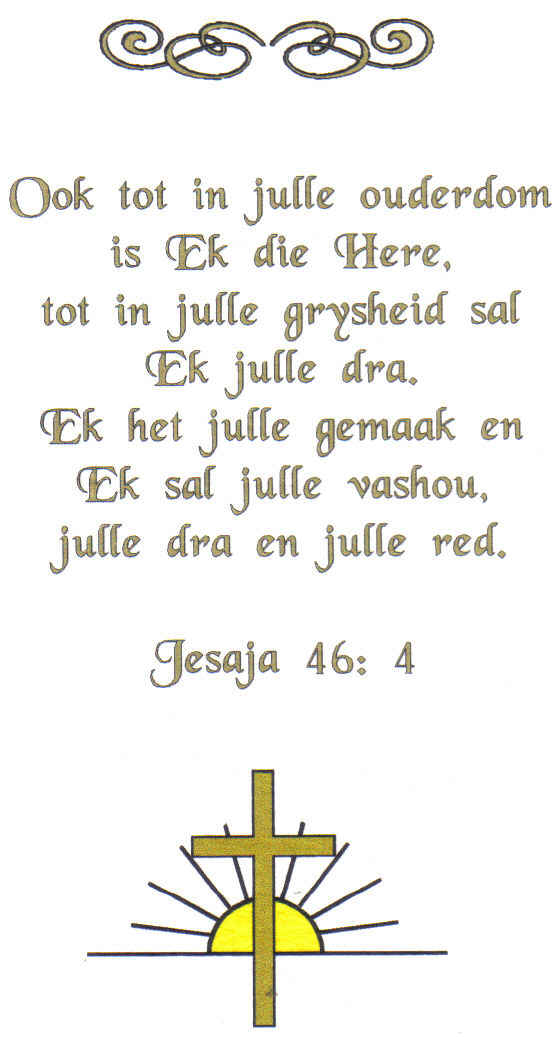 Ook tot in julle ouderdom
is Ek die Here,
tot in julle grysheid sal
Ek julle dra.
Ek het julle gemaak en
Ek sal julle vashou,
julle dra en julle red.
Jesaja 46: 4